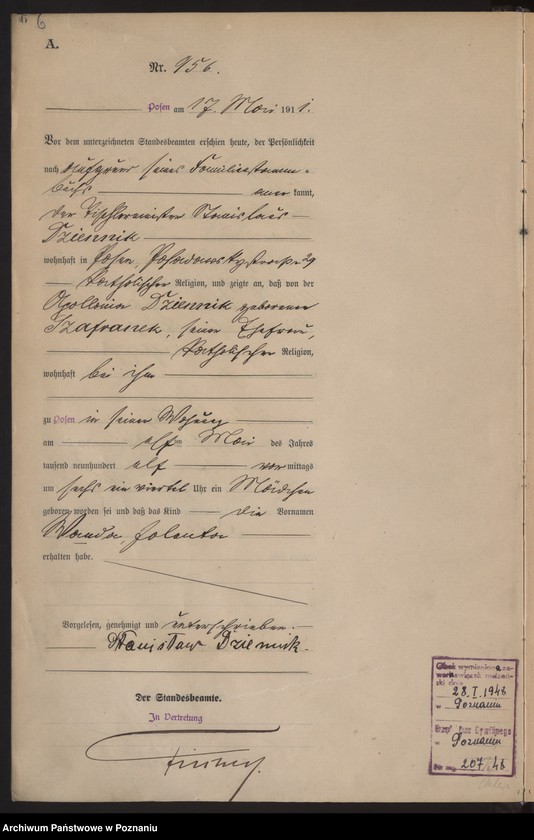 6
A.
Nr. 956.
Posen am 17. Mai 1911.
Vor dem unterzeichneten Standesbeamten erschien heute, der Persönlichkeit
nach aufgrund seines Familienstamm-
buchs anerkannt,
der Tischlermeister Stanislaus
Dziennik
wohnhaft in Posen, Posadowskystraße 29
katholischer Religion, und zeigte an, daß von der
Apollonia Dziennik geborenen
Szafranek, seiner Ehefrau,
katholischer Religion,
wohnhaft bei ihm
zu Posen in seiner Wohnung
am elften Mai des Jahres
tausend neunhundert elf vormittags
um sechs ein viertel Uhr ein Mädchen
geboren worden sei und daß das Kind die Vornamen
Wanda, Jolanta
erhalten habe.
Vorgelesen, genehmigt und unterschrieben.
Stanisław Dziennik.
Der Standesbeamte.
In Vertretung
Obok wymieniona za-
warł związek małżeń-
ski dnia
28.I.1948
w Poznaniu
Urząd Stan Cywilnego
w Poznaniu
Nr rej. 207/48
Archiwum Państwowe w Poznaniu